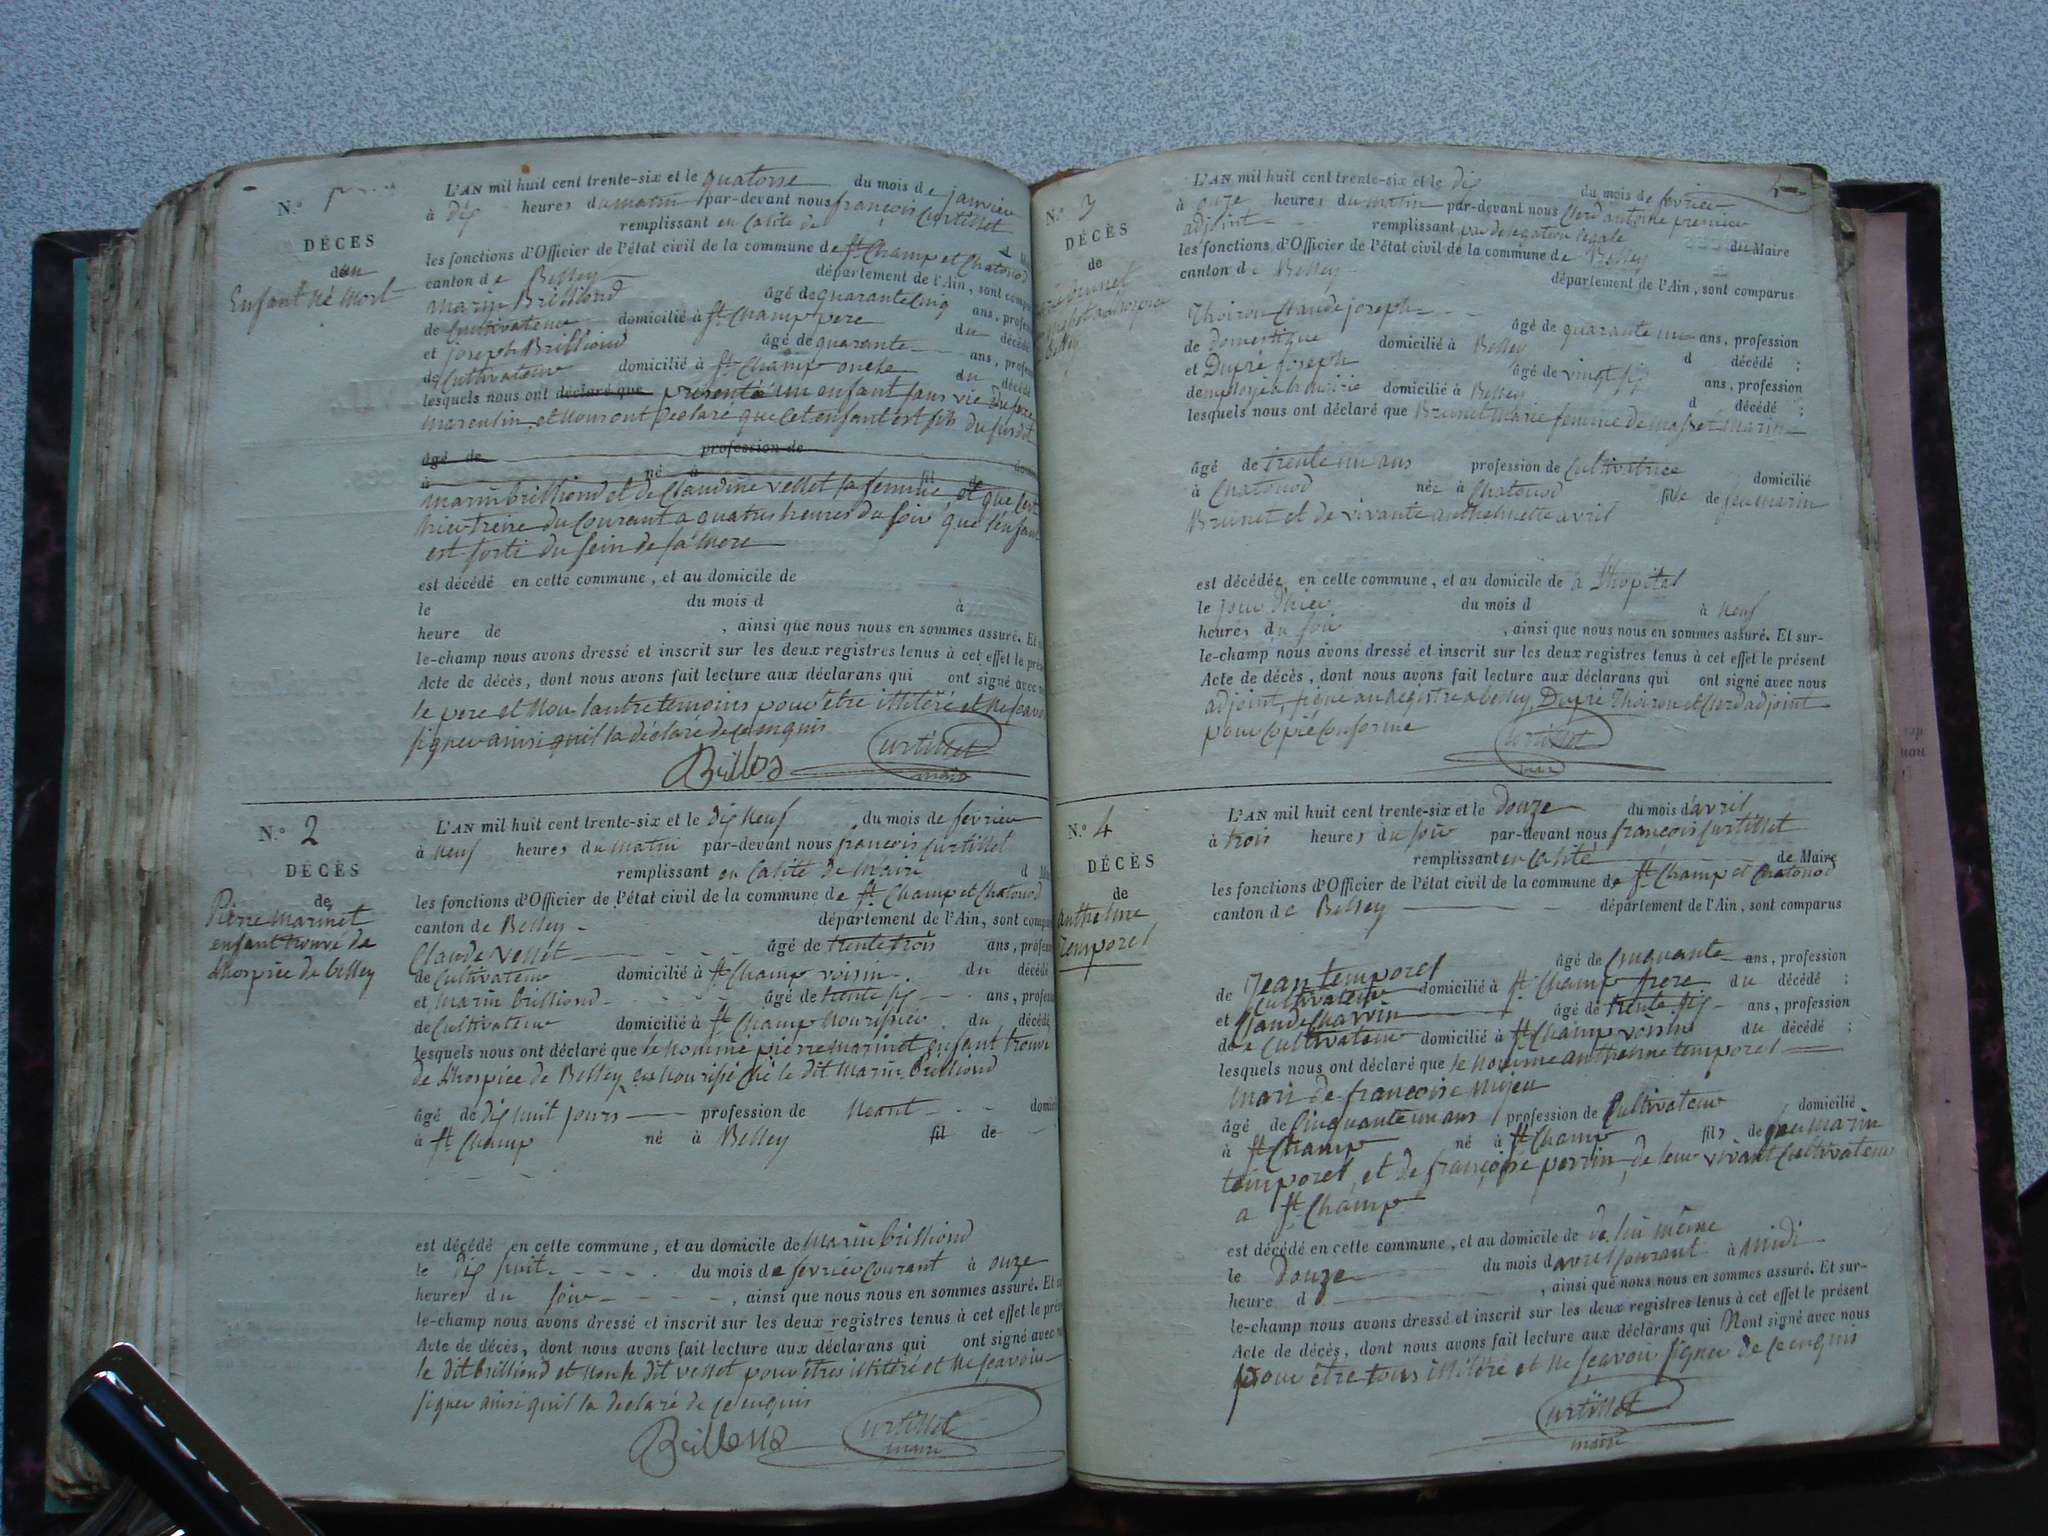 N.° 1
DÉCES
d'un
Enfant Né Mort
L'AN mil huit cent trente-six et le quatorse du mois de janvier
à dix heures du matin par-devant nous françois Curtillet
remplissant en calité de
les fonctions d'Officier de l'état civil de la commune de St Champ et Chatonod
canton de Belley département de l'Ain, sont
Marin Brilliond âgé de quarante cinq ans,
de Cultivateur domicilié à St Champ pere du décédé
et joseph Brilliond âgé de quarante ans,
de Cultivateur domicilié à St Champ oncle du décédé
lesquels nous ont déclaré que presenté un enfant sans vie du sexe
masculin et nous ont declaré que cet enfant est fils du susdit
âgé de profession de
à né à fil de
marin brilliond et de Claudine vellet sa femme, et que c'est
hier treize du courant a quatres heures du soir que l'enfant
est sorti du sein de sa mere
est décédé en cette commune, et au domicile de
le du mois d à
heure de , ainsi que nous nous en sommes assuré. Et
le-champ nous avons dressé et inscrit sur les deux registres tenus à cet effet le
Acte de décès, dont nous avons fait lecture aux déclarans qui ont signé avec
le pere et non l'autre temoins pour être illitéré et ne scavoir
signer ainsi quil la déclaré de ce enquis
Brillon Curtillet
maire
N.° 2
DÉCÈS
de
Pierre marinet
enfant trouvé de
Lhospice de belley
L'AN mil huit cent trente-six et le dix neuf du mois de fevrier
à neuf heures du matin par-devant nous françois Curtillet
remplissant en calité de Maire d
les fonctions d'Officier de l'état civil de la commune de St Champ et Chatonod
canton de Belley département de l'Ain, sont
Claude Vellet âgé de trente trois ans,
de Cultivateur domicilié à St Champ voisin du décédé
et marin brilliond âgé de trente six ans,
de Cultivateur domicilié à St Champ nourissier du décédé
lesquels nous ont déclaré que le nommé pierre marinet enfant trouvé
de Lhospice de Belley en nourisse ché le dit Marin brilliond
âgé de dix huit jours profession de Neant
à St Champ né à Belley fil de
est décédé en cette commune, et au domicile de Marin brilliond
le dix huit du mois de fevrier courant à onze
heures du soir , ainsi que nous nous en sommes assuré. Et
le-champ nous avons dressé et inscrit sur les deux registres tenus à cet effet le
Acte de décès, dont nous avons fait lecture aux déclarans qui ont signé avec
le dit brilliond et non le dit vellet pour êtres illitéré et ne scavoir
signer ainsi quil la declaré de ce enquis
Brillond Curtillet
maire
N.° 3
DÉCÈS
de
L'AN mil huit cent trente-six et le dix du mois de fevrier
à onze heures du matin par-devant nous Clerd antoine premier
adjoint remplissant par delegation legale du Maire
les fonctions d'Officier de l'état civil de la commune de Belley
canton de Belley département de l'Ain, sont comparus
Thoiron Claude joseph âgé de quarante un ans, profession
de domestique domicilié à Belley d décédé ;
et Dupré joseph âgé de vingt six ans, profession
demployé à la mairie domicilié à Belley d décédé ;
lesquels nous ont déclaré que Brunet Marie femme de masset Marin
âgé de trente un ans profession de Cultivatrice domicilié
à Chatonod née à Chatonod fille de feu marin
Brunet et de vivante anthelmette avril
est décédée en cette commune, et au domicile de à Lhopital
le jour d'hier du mois d à neuf
heures du soir , ainsi que nous nous en sommes assuré. Et sur-
le-champ nous avons dressé et inscrit sur les deux registres tenus à cet effet le présent
Acte de décès, dont nous avons fait lecture aux déclarans qui ont signé avec nous
adjoint, signé au Registre a belley, Dupré Thoiron et Clerd adjoint
pour copie conforme
Curtillet
maire
N.° 4
DÉCÈS
de
anthelme
Temporel
L'AN mil huit cent trente-six et le douze du mois d'avril
à trois heures du soir par-devant nous françois Curtillet
remplissant en calité de Maire
les fonctions d'Officier de l'état civil de la commune de St Champ et Chatonod
canton de Belley département de l'Ain, sont comparus
Jean temporel âgé de cinquante ans, profession
de Cultivateur domicilié à St Champ frere du décédé ;
et Claude Charvin âgé de trente six ans, profession
de Cultivateur domicilié à St Champ voisin du décédé ;
lesquels nous ont déclaré que le nommé anthelme temporel
mari de francoise Mujeu
âgé de Cinquante un ans profession de Cultivateur domicilié
à St Champ né à St Champ fils de feu marin
temporel, et de françoise perrin, de leur vivant Cultivateur
a St Champ
est décédé en cette commune, et au domicile de de lui même
le douze du mois d'avril courant à midi
heure d , ainsi que nous nous en sommes assuré. Et sur-
le-champ nous avons dressé et inscrit sur les deux registres tenus à cet effet le présent
Acte de décès, dont nous avons fait lecture aux déclarans qui Nont signé avec nous
pour être tous illitéré et ne scavoir signer de ce enquis
Curtillet
maire